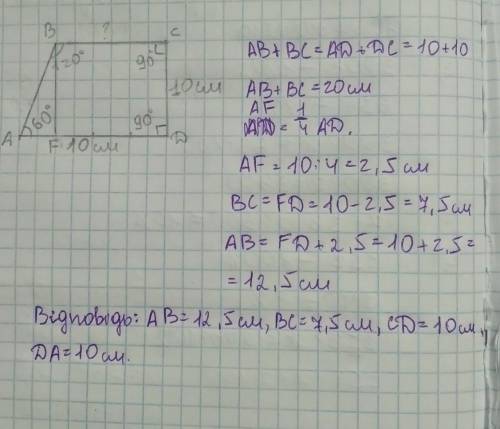 B ? C
20° 90°
10см
A 60° F 10см 90° D
AB+BC=AD+DC=10+10
AB+BC=20см
AF = 1/4 AD.
AF=10:4=2,5см
BC=FD=10-2,5=7,5см
AB=FD+2,5=10+2,5=
=12,5см
Відповідь: AB=12,5см, BC=7,5см, CD=10см,
DA=10см.